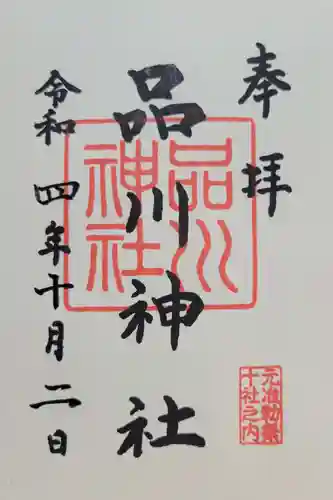 奉拝
品川神社
令和四年十月二日
品川神社
元准勅祭
十社之内